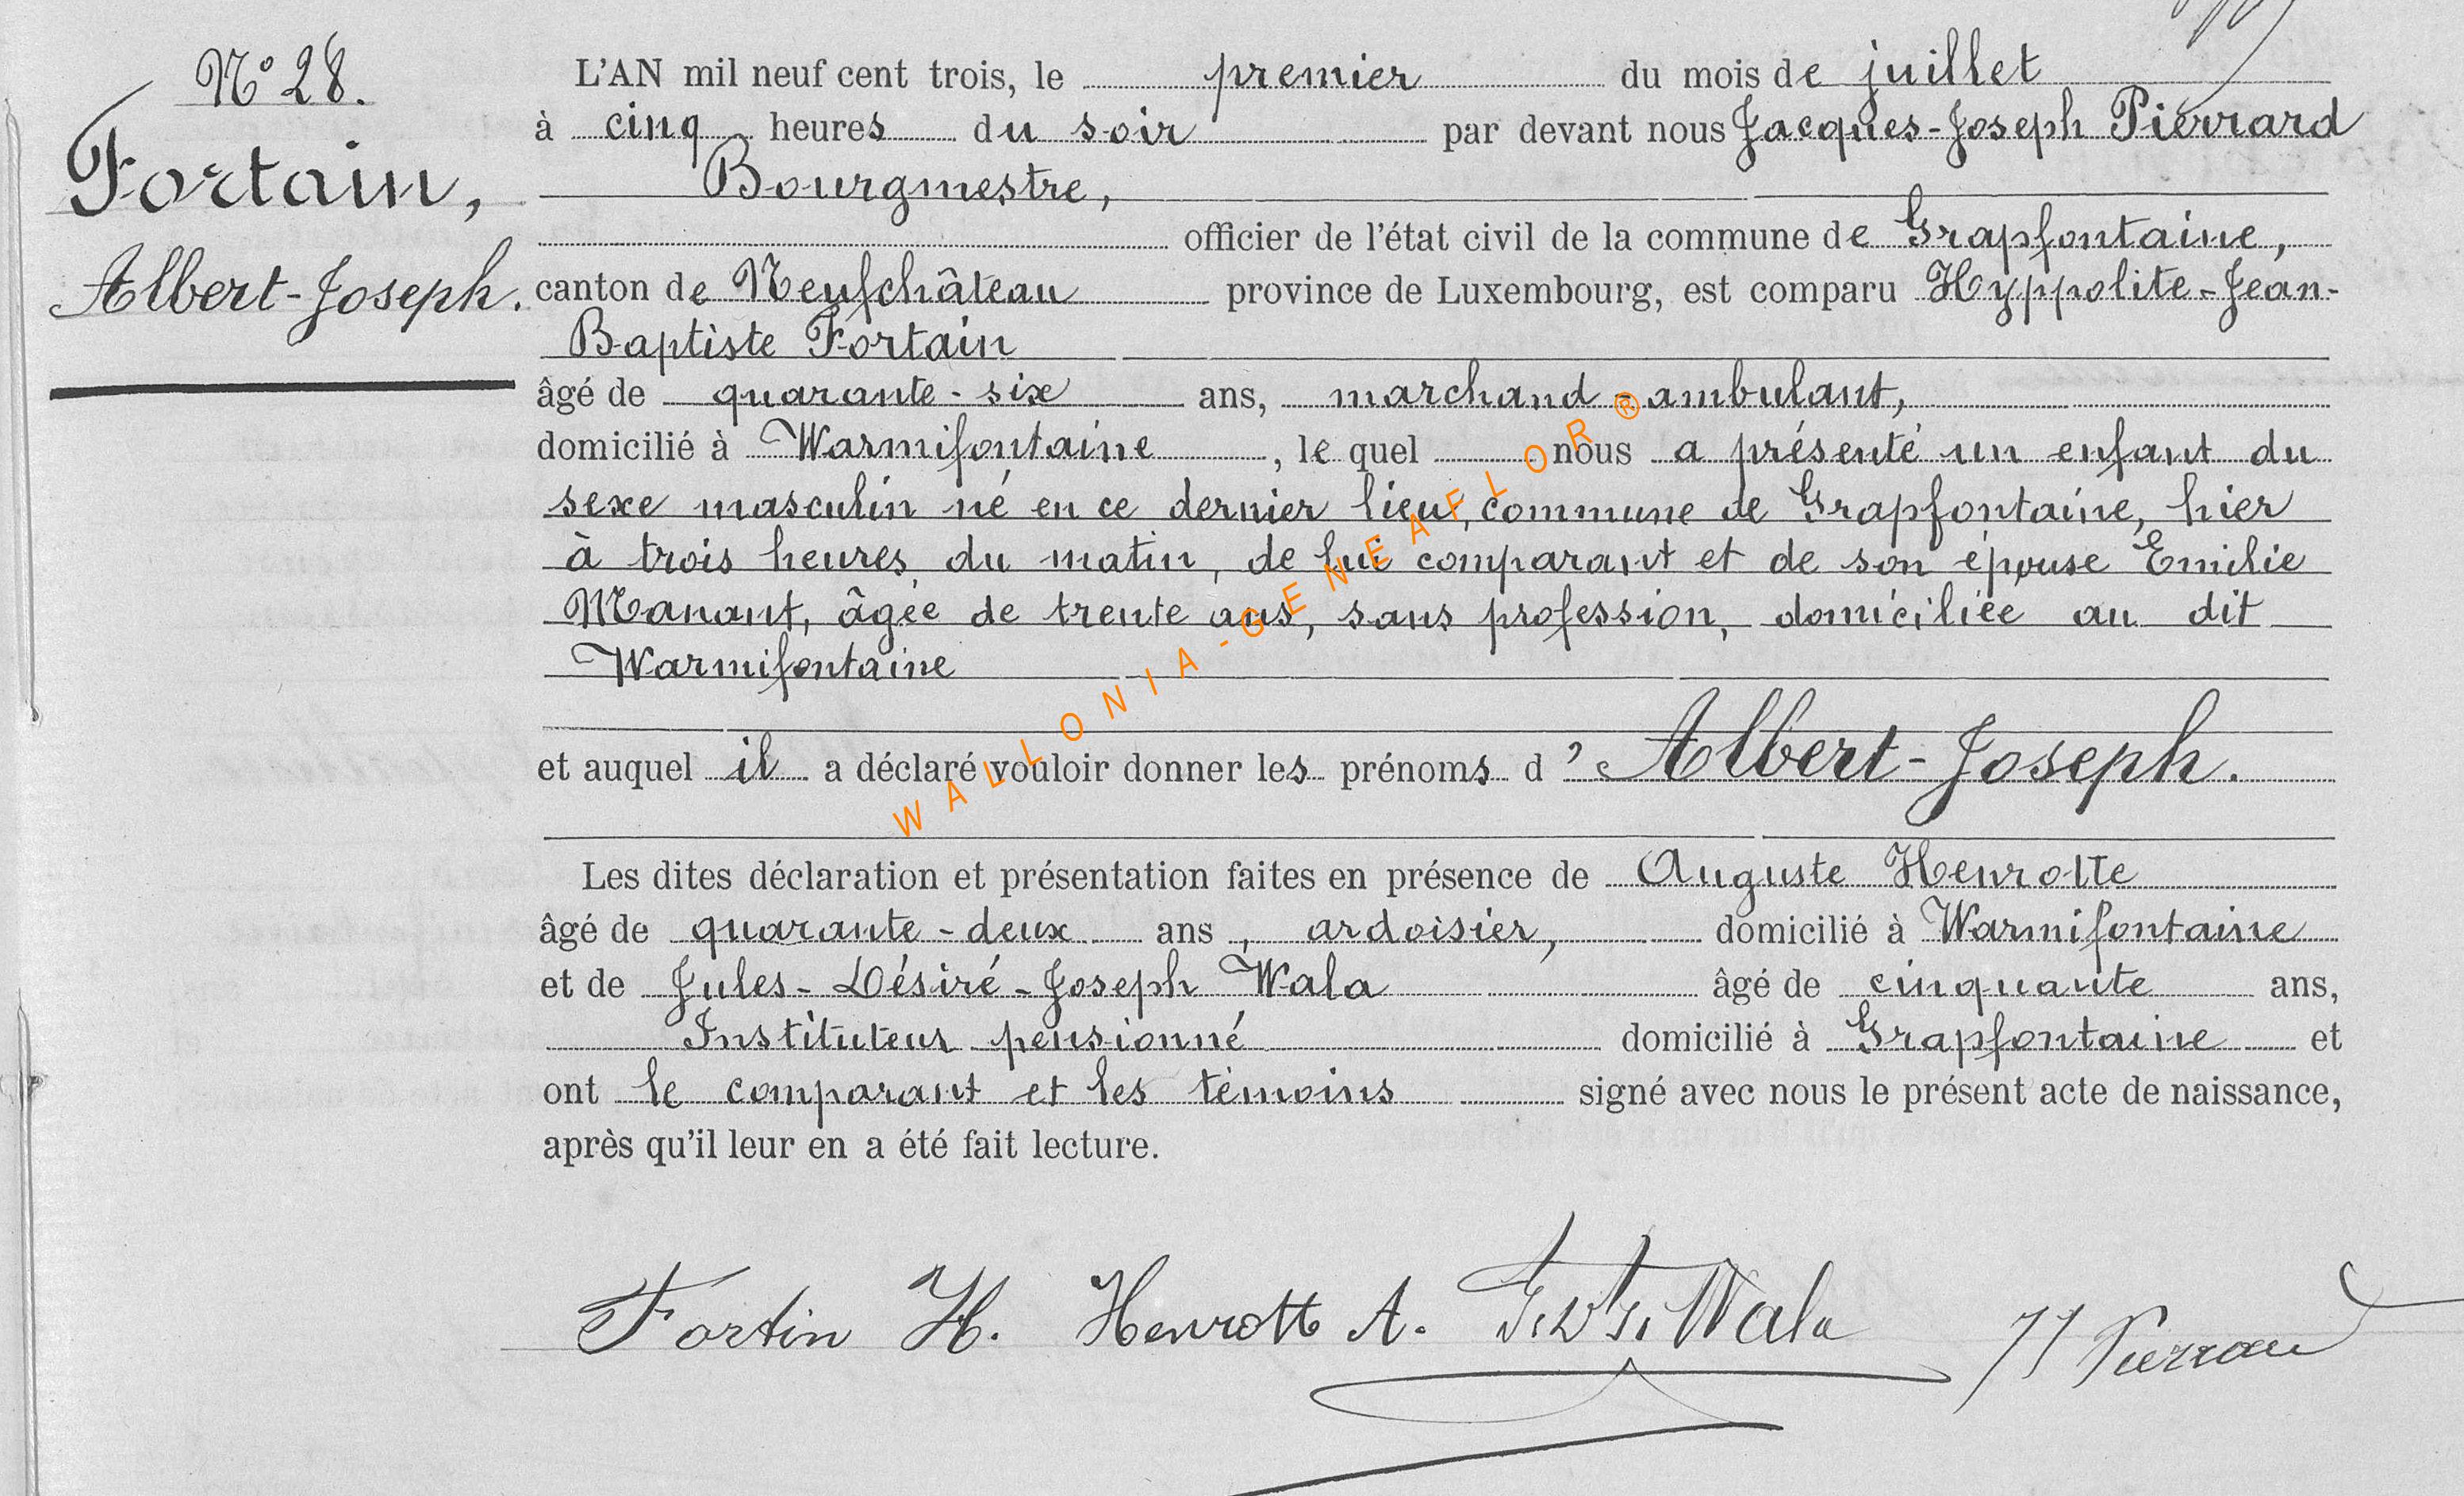 N° 28.
Fortain,
Albert-Joseph.
L'AN mil neuf cent trois, le premier du mois de juillet
à cinq heures du soir par devant nous Jacques-Joseph Pierrard
Bourgmestre,
officier de l'état civil de la commune de Grapfontaine,
canton de Neufchâteau province de Luxembourg, est comparu Hyppolite-Jean-
Baptiste Fortain
âgé de quarante-six ans, marchand-ambulant,
domicilié à Warmifontaine, le quel nous a présenté un enfant du
sexe masculin né en ce dernier lieu, commune de Grapfontaine, hier
à trois heures du matin, de lui comparant et de son épouse Emilie
Manant, âgée de trente ans, sans profession, domiciliée au dit
Warmifontaine
et auquel il a déclaré vouloir donner les prénoms d'Albert-Joseph.
Les dites déclaration et présentation faites en présence de Auguste Henrotte
âgé de quarante-deux ans, ardoisier, domicilié à Warmifontaine
et de Jules-Désiré-Joseph Wala âgé de cinquante ans,
Instituteur pensionné domicilié à Grapfontaine et
ont le comparant et les témoins signé avec nous le présent acte de naissance,
après qu'il leur en a été fait lecture.
Fortin H. Henrott A. J.D.J. Wala JJ Pierrard
WALLONIA-GENEAFLOR®